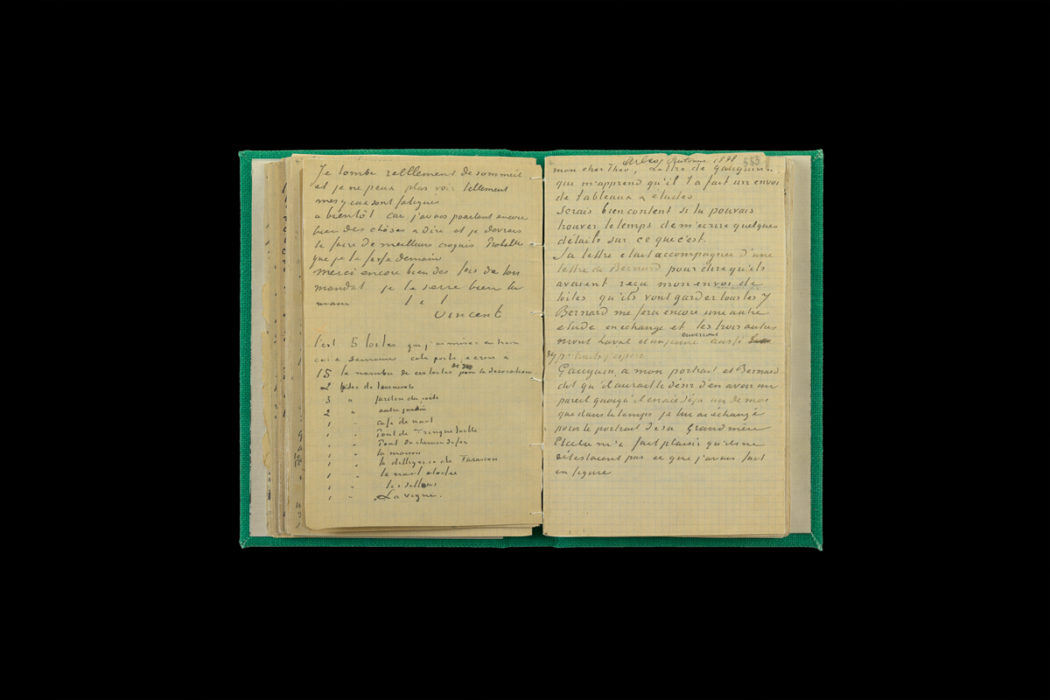 Je tombe reellement de sommeil
et je ne peux plus voir tellement
mes yeux sont fatigués
a bientôt car j'avais pourtant encore
bien des choses a dire et je devrais
te faire de meilleurs croquis Probable
que je le fasse demain
merci encore bien des fois de ton
mandat je te serre bien la
main t. à t.
Vincent
C'est 5 toiles que j'ai mises en train
cette semaine cela porte je crois à
15 le nombre de ces toiles de 30 pour la décoration
2 toiles de tournesols
3 " jardin du poète
2 " autre jardin
1 " café de nuit
1 " Pont de Trinquetaille
1 " Pont du chemin de fer
1 " la maison
1 " la dilligence de Tarascon
1 " la nuit etoilée
1 " les sillons
1 " La vigne.
Arles, Automne 1888 553
mon cher Theo, Lettre de Gauguin
qui m'apprend qu'il t'a fait un envoi
de tableaux & études
Serais bien content si tu pouvais
trouver le temps de m'écrire quelques
détails sur ce que c'est.
Sa lettre etait accompagnée d'une
lettre de Bernard pour dire qu'ils
avaient reçu mon envoi de
toiles qu'ils vont garder toutes les 7
Bernard me fera encore une autre
etude en echange et les trois autres
Moret Laval et un jeune enverront aussi
des portraits j'espère
Gauguin a mon portrait et Bernard
dit qu'il aurait le désir d'en avoir un
pareil quoiqu'il en ait déjà un de moi
que dans le temps je lui ai échangé
pour le portrait de sa Grand mère
Et cela m'a fait plaisir qu'ils ne
détestaient pas ce que j'avais fait
en figure